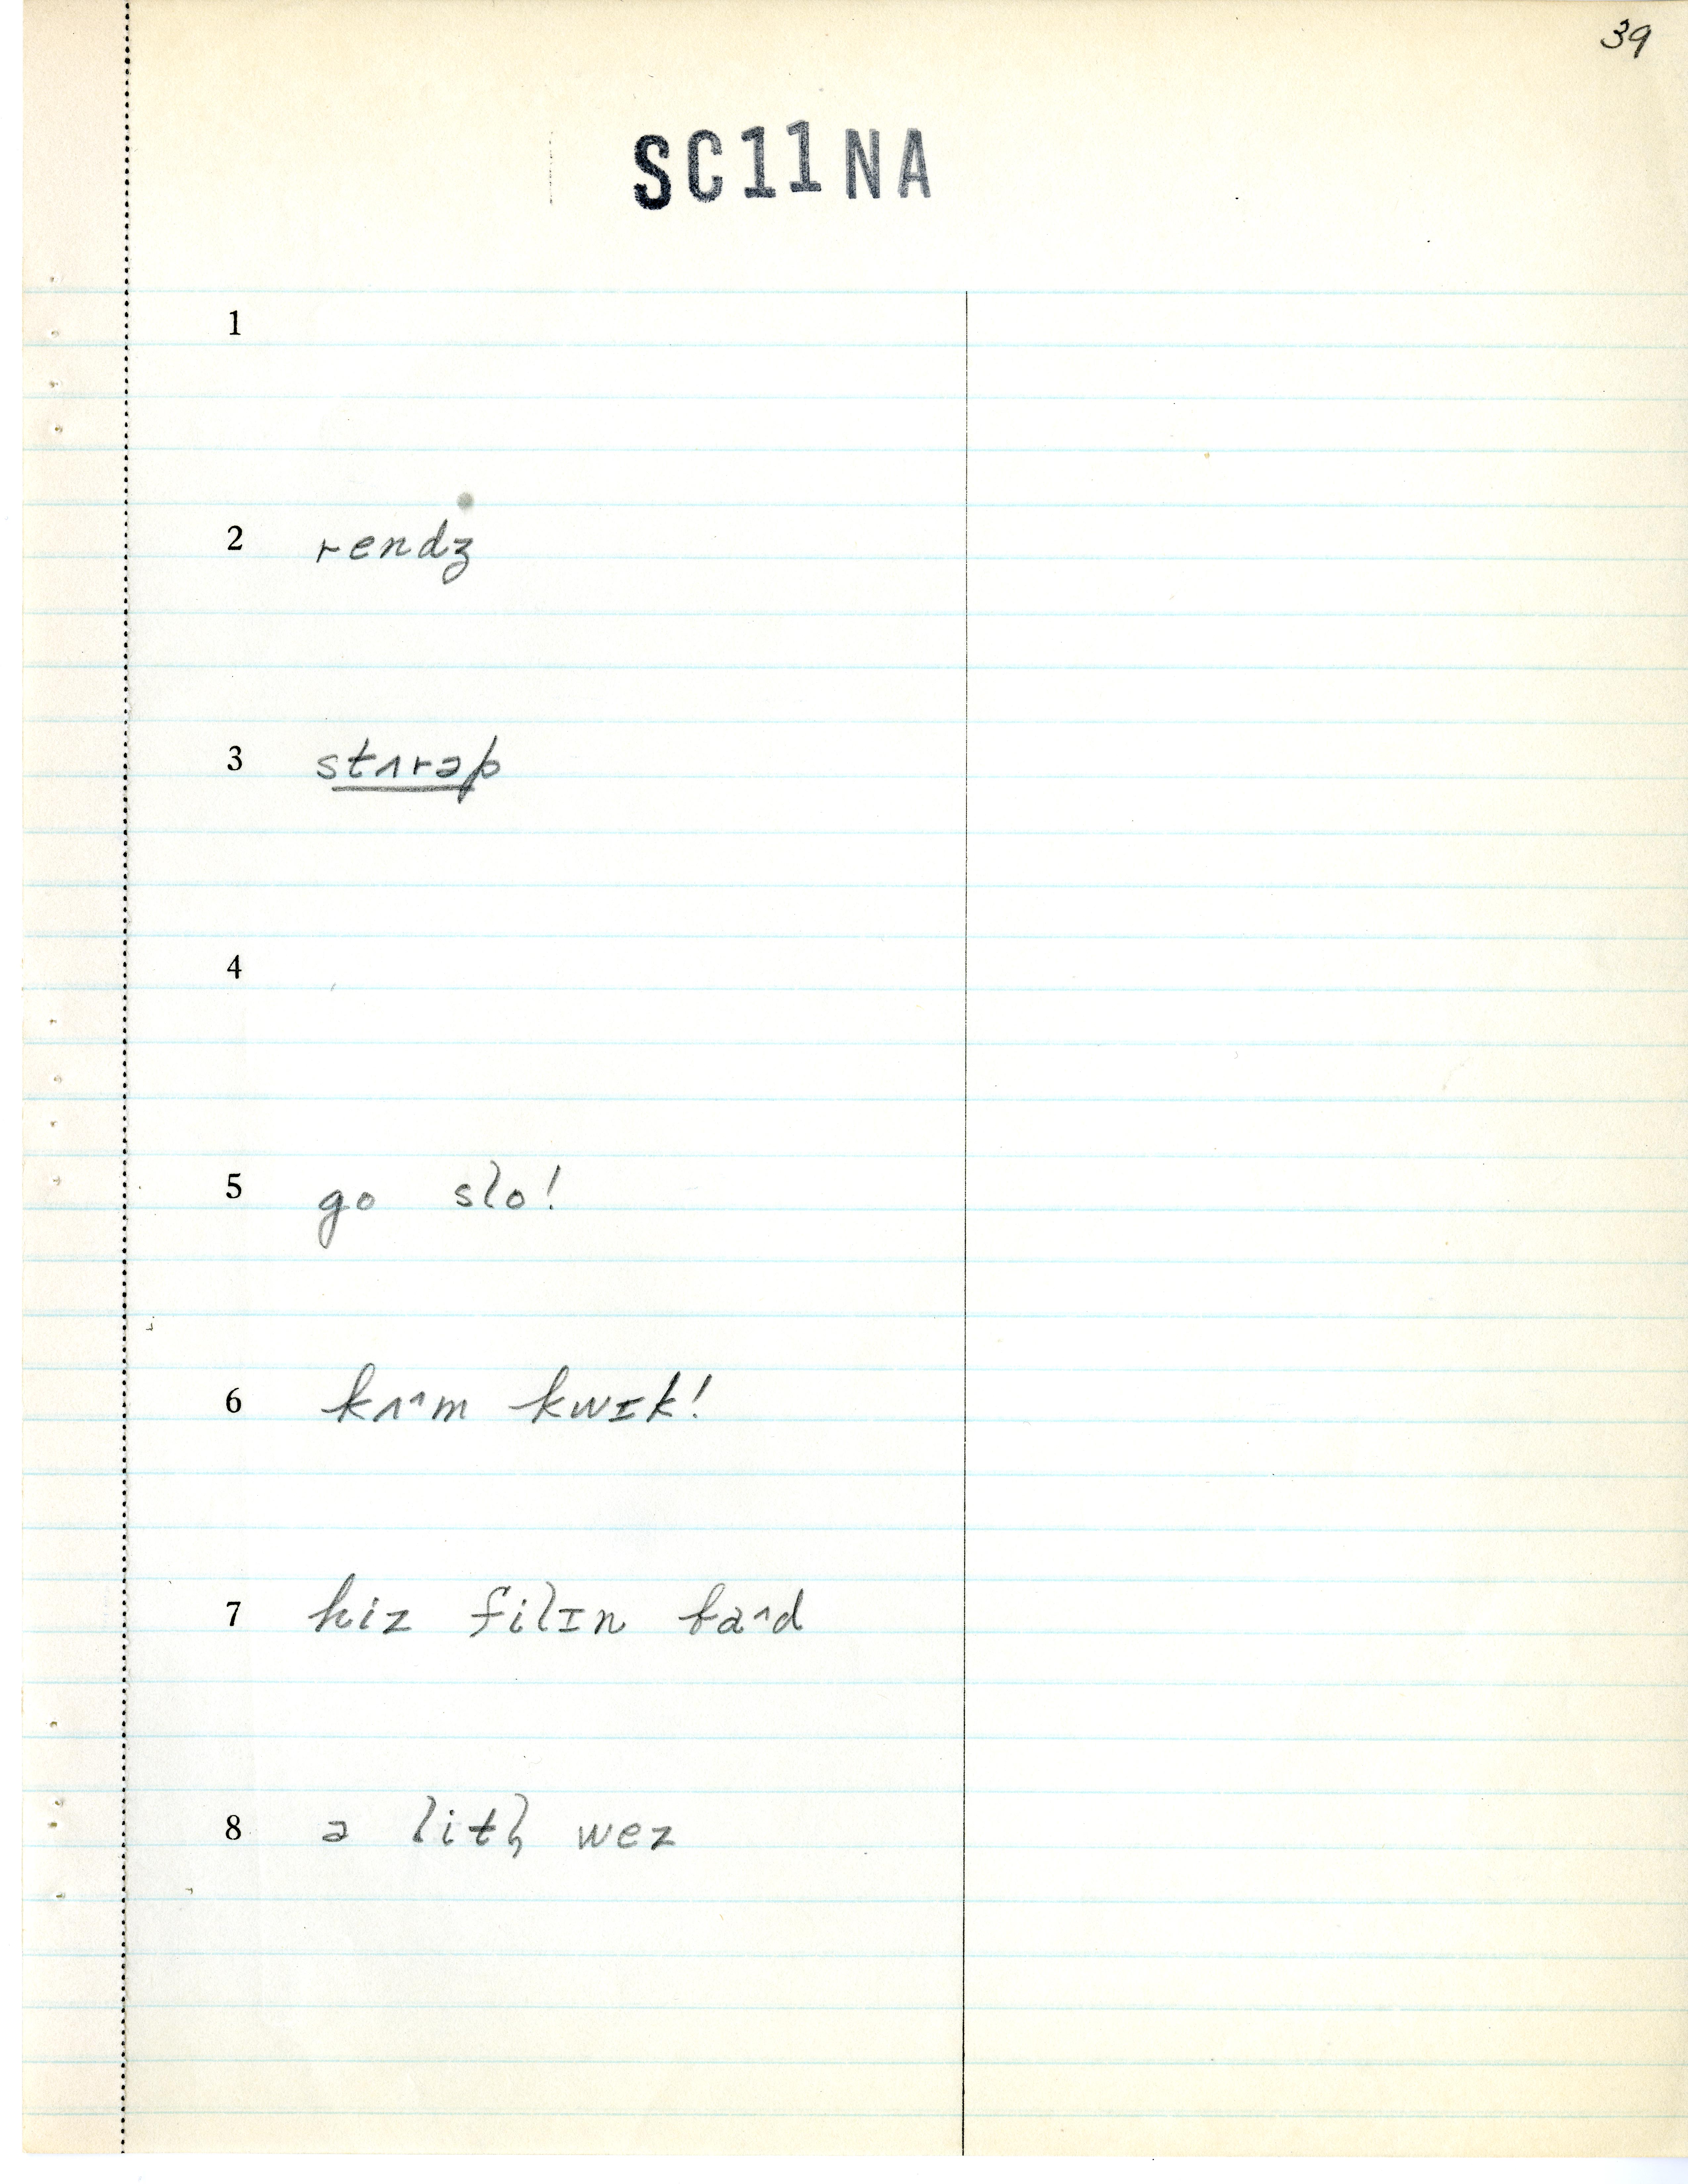 39
SC11NA
1
2 rendz
3 stʌrəp
4
5 go slo!
6 kʌ^m kwɪk!
7 hiz filɪn ba^d
8 ə litl̩ wez